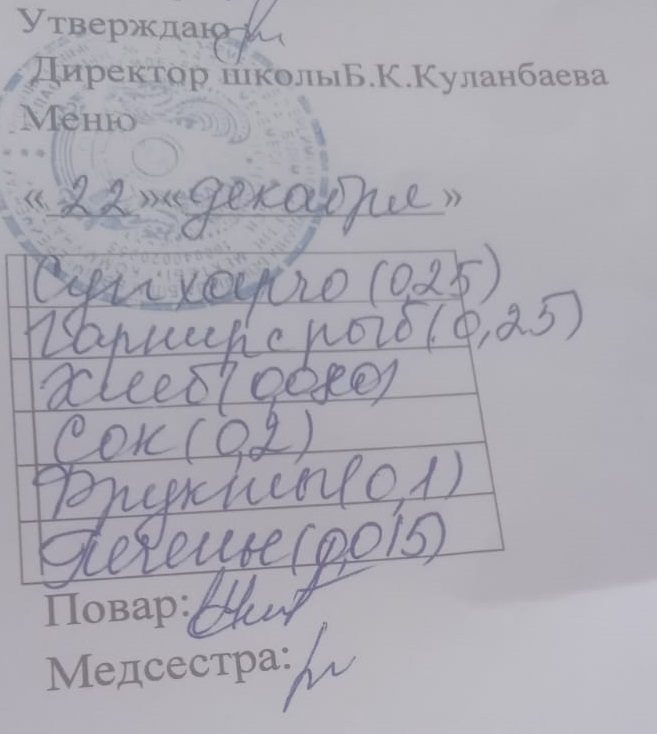 Утверждаю
Директор школыБ.К.Куланбаева
Меню
«22»«декабря»
Суп харчо (0,25)
Гарнир с рыб(.0,25)
Хлеб(0,080)
Сок (0,2)
Фрукты(0,1)
Печенье (0,015)
Повар:
Медсестра: